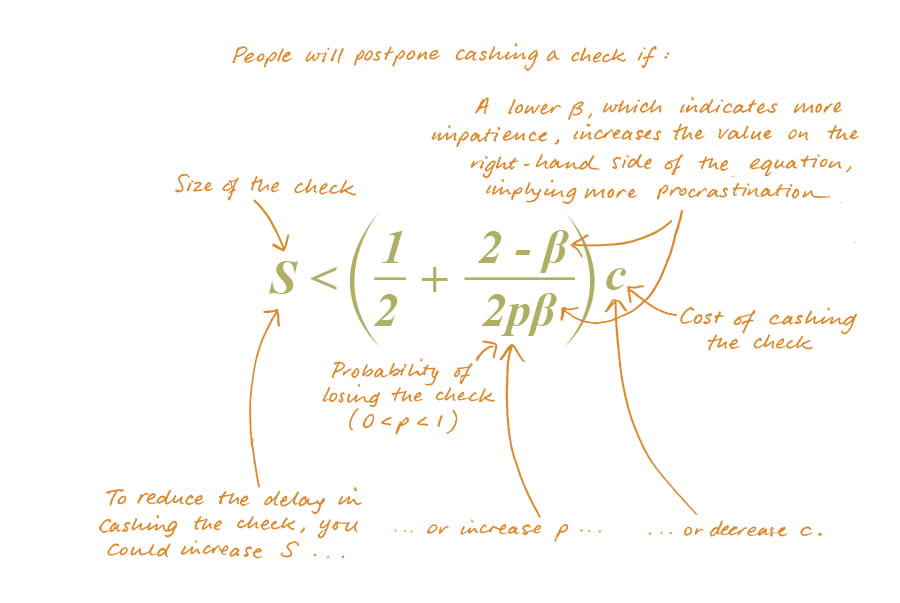 People will postpone cashing a check if:
A lower β, which indicates more
impatience, increases the value on the
right-hand side of the equation,
implying more procrastination
Size of the check
S < (1/2 + (2 - β)/(2pβ)) c
Cost of cashing
the check
Probability of
losing the check
(0 < p < 1)
To reduce the delay in
cashing the check, you
could increase S ...
... or increase p ...
... or decrease c.